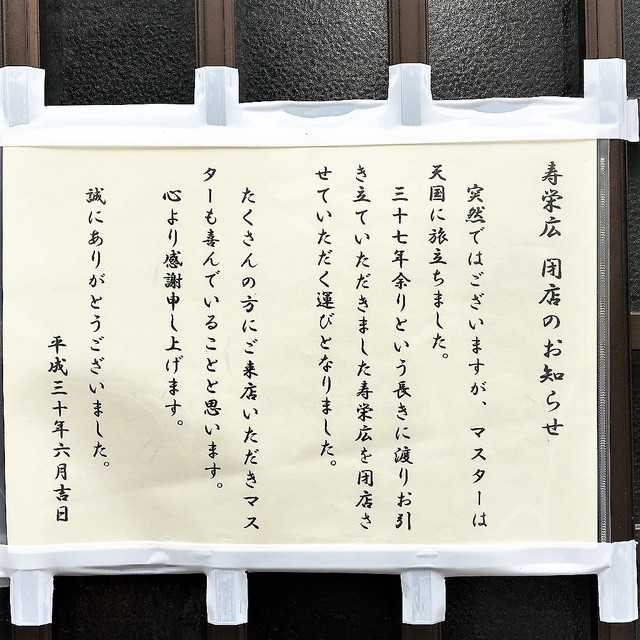 寿栄広 閉店のお知らせ
突然ではございますが、マスターは
天国に旅立ちました。
三十七年余りという長きに渡りお引
き立ていただきました寿栄広を閉店さ
せていただく運びとなりました。
たくさんの方にご来店いただきマス
ターも喜んでいることと思います。
心より感謝申し上げます。
誠にありがとうございました。
平成三十年六月吉日